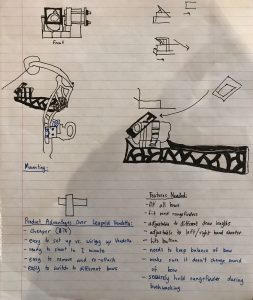 Front
Mounting:
Product Advantages Over Leupold Vendetta:
- Cheaper
- easy to set up vs. wiring up Vendetta
- ready to shoot in 1 minute
- easy to remove and re-attach
- easily to switch to different bows
Features Needed:
- fit all bows
- fit most rangefinders
- adjustable to different draw lengths
- adjustable to left/right hand shooter
- hits button
- needs to keep balance of bow
- make sure it doesn't change sound
of bow
- securely hold rangefinder during
bushwacking